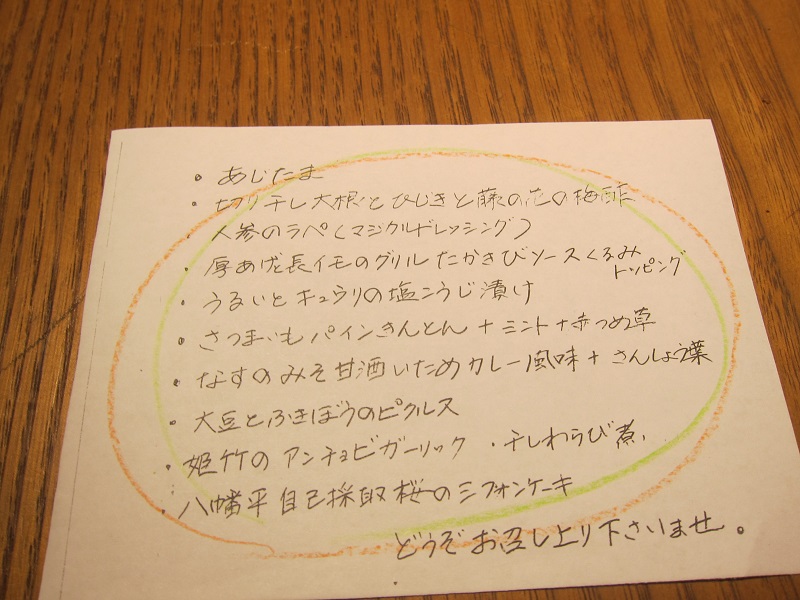 ・あじたま
・切り干し大根とひじきと藤の花の梅酢
・人参のラペ(マジカルドレッシング)
・厚あげと長イモのグリル たかきびソース くるみ
トッピング
・うるいとキュウリの塩こうじ漬け
・さつまいもパインきんとん+ミント+赤つめ草
・なすのみそ甘酒いためカレー風味+さんしょう葉
・大豆とふきぼうのピクルス
・姫竹のアンチョビガーリック ・干しわらび煮
・八幡平自己採取桜のシフォンケーキ
どうぞお召し上り下さいませ。